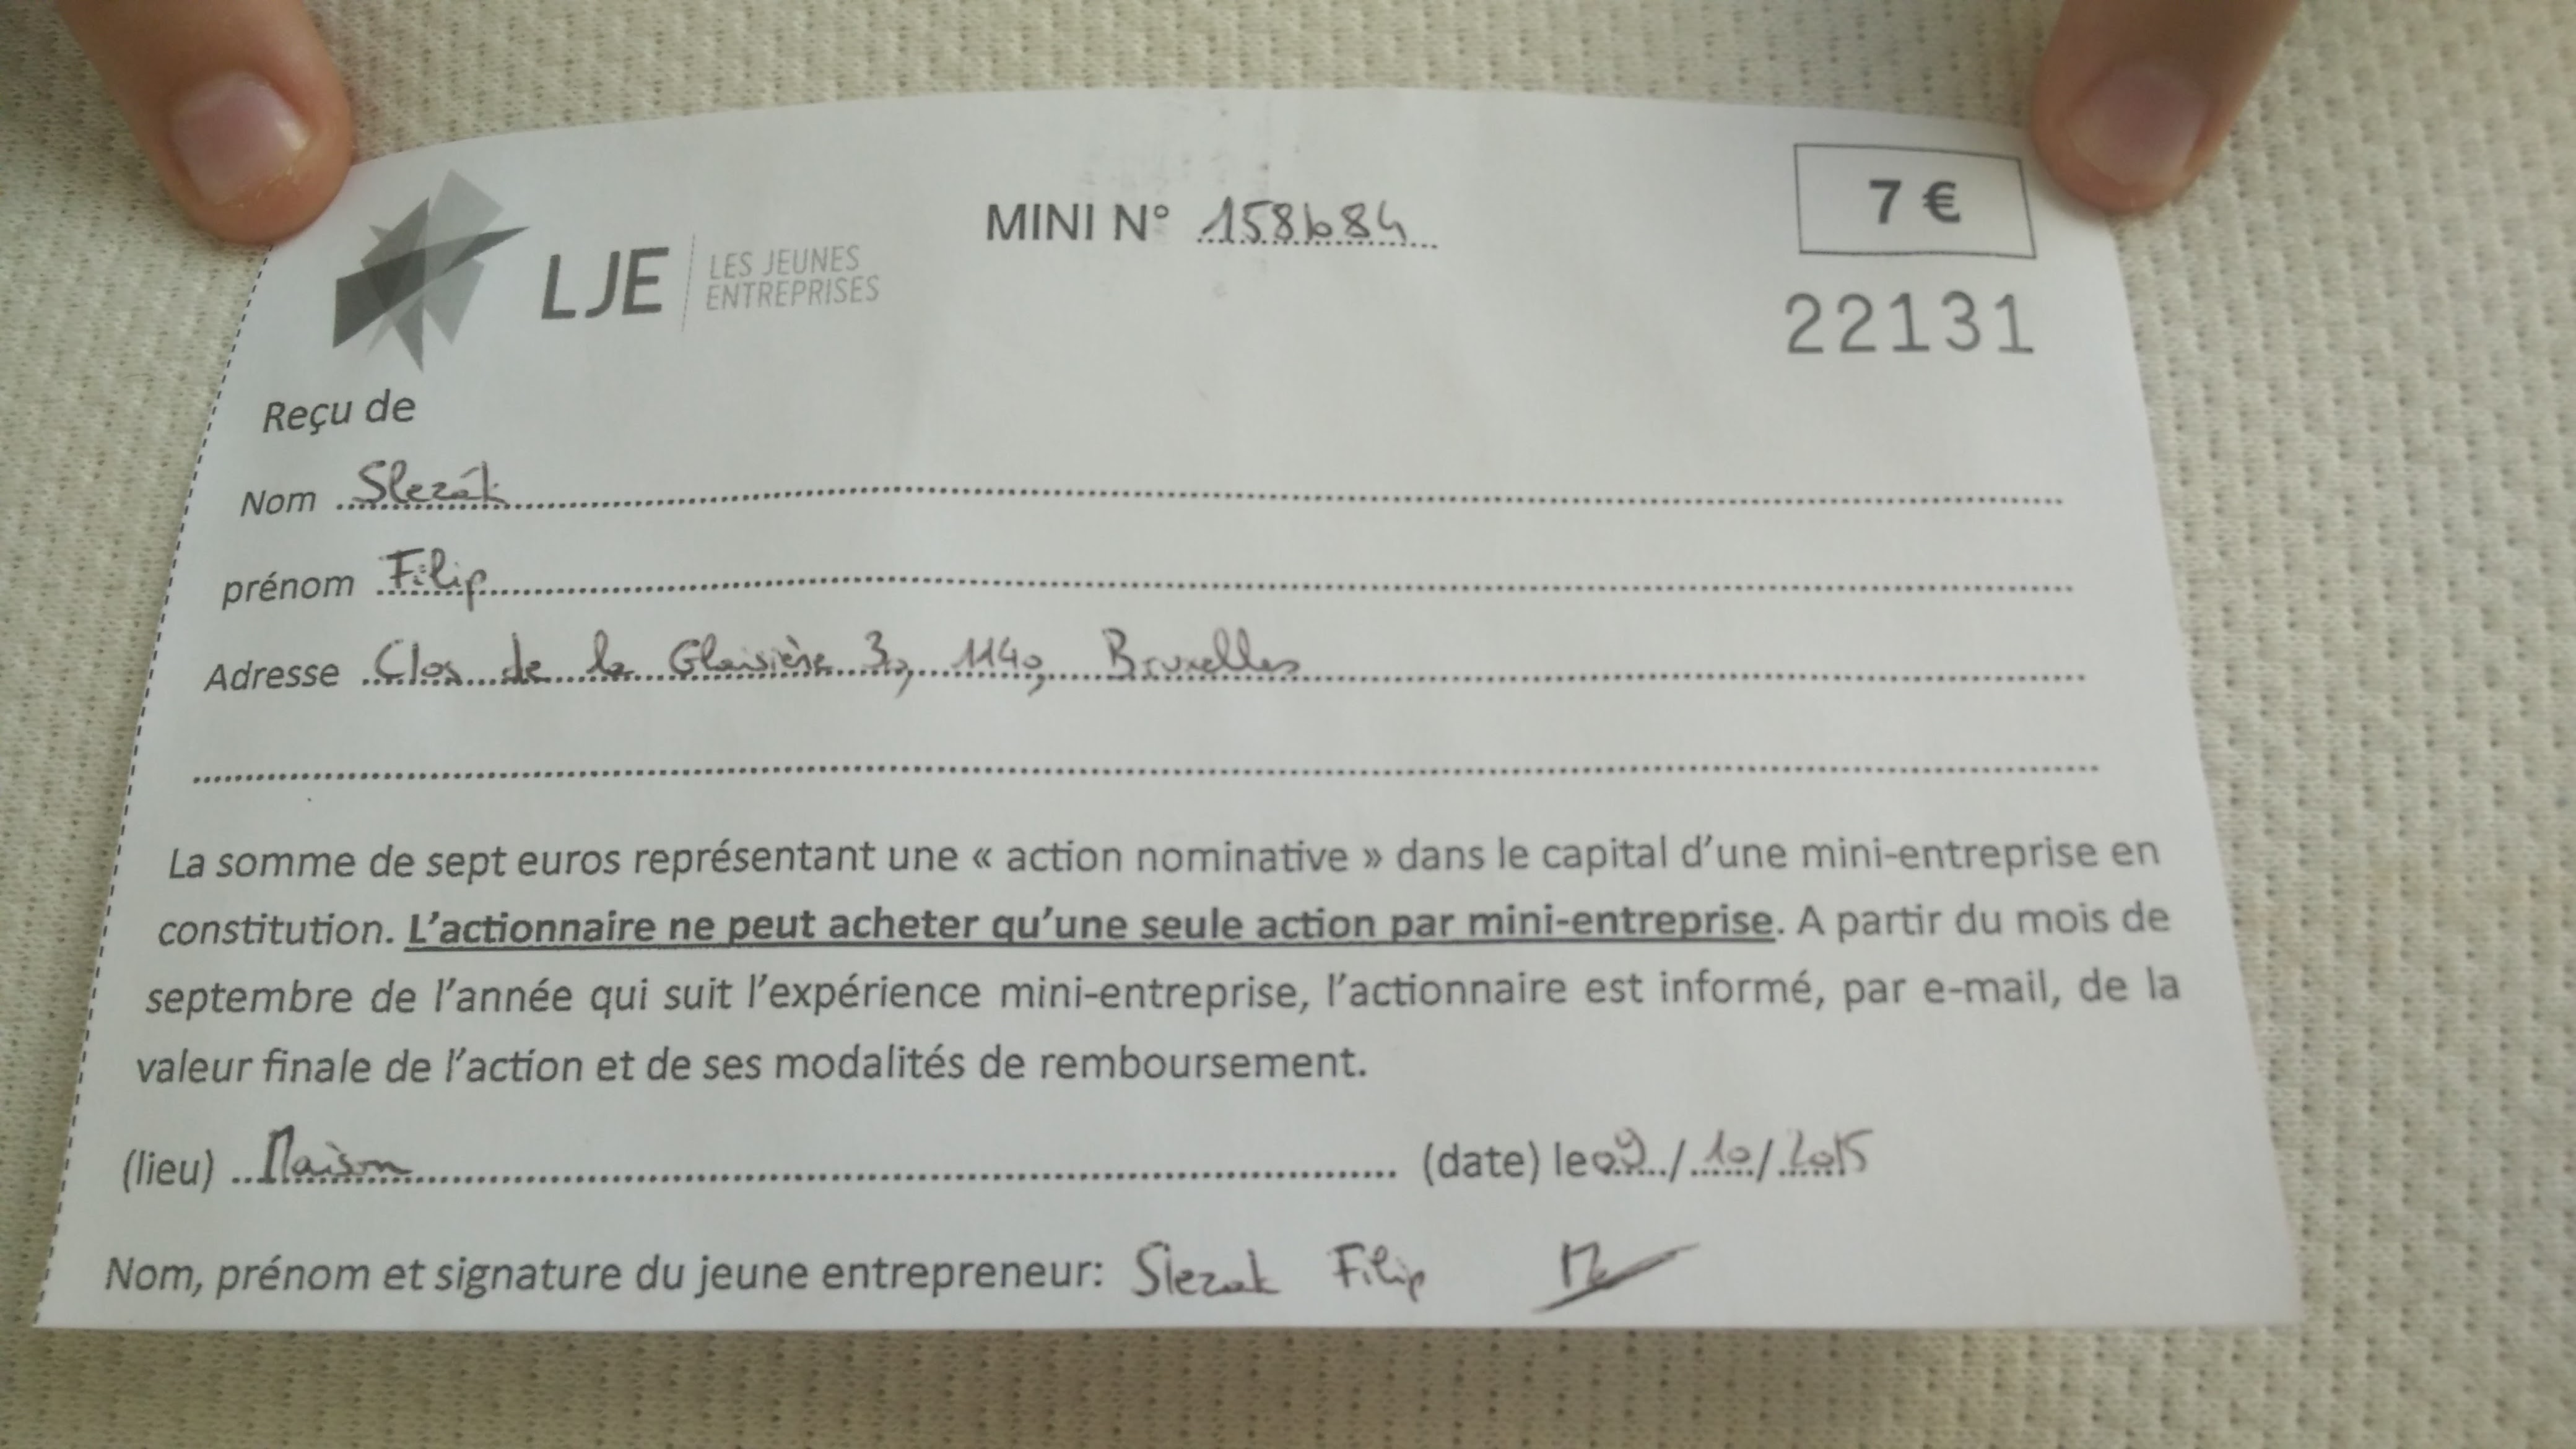 LJE LES JEUNES ENTREPRISES
MINI N° 158684
7 €
22131
Reçu de
Nom Slezák
prénom Filip
Adresse Clos de la Glaisière 3, 1140, Bruxelles
La somme de sept euros représentant une « action nominative » dans le capital d'une mini-entreprise en
constitution. L'actionnaire ne peut acheter qu'une seule action par mini-entreprise. A partir du mois de
septembre de l'année qui suit l'expérience mini-entreprise, l'actionnaire est informé, par e-mail, de la
valeur finale de l'action et de ses modalités de remboursement.
(lieu) Maison (date) le 09/10/2015
Nom, prénom et signature du jeune entrepreneur: Slezak Filip